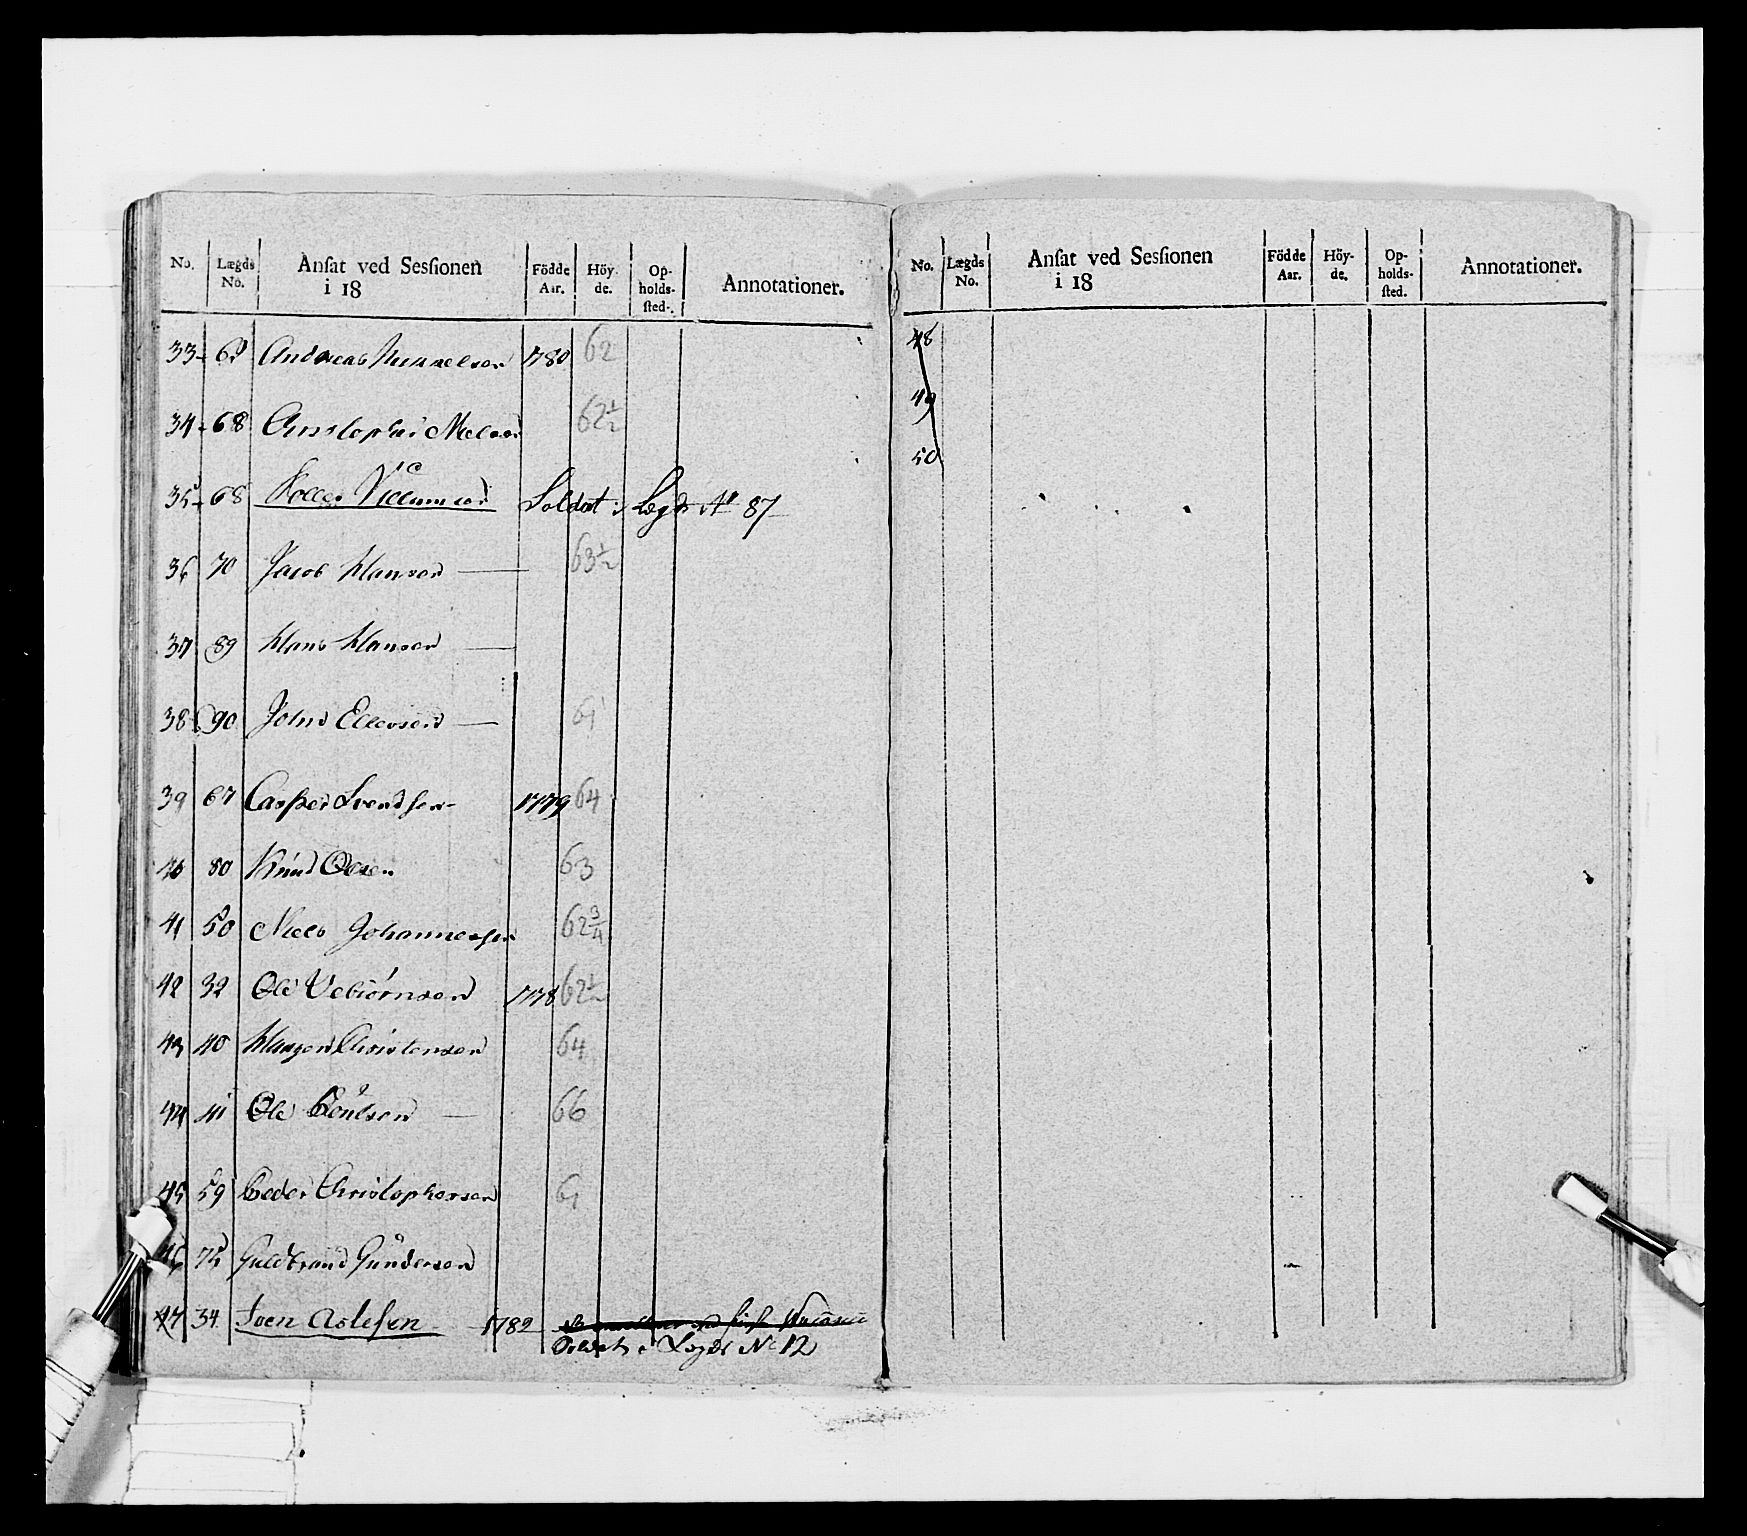 No. Lægds No. Ansat ved Sessionen i 18 Födde Aar. Höy- de. Op- holds- sted. Annotationer.
33 Andreas 1780 62
34 68 62½
35 68 Soldat i Lægds No 87
36 70 Jacob Hansen 63½
37 89 Hans Hansen
38 90 John Ellevsen 61
39 67 Casper Svendsen 1779 64
40 80 Knud Olsen 63
41 50 Niels Johannessen 62¾
42 32 Ole Vebiörnsen 1778 62½
43 40 Christensen 64
44 41 Ole Poulsen 66
45 59 Peder Christophersen 61
46 75 Guldbrand Gundersen
47 34 Sven Aslesen 1782
Soldat i Lægds No 12
No. Lægds No. Ansat ved Sessionen i 18 Födde Aar. Höy- de. Op- holds- sted. Annotationer.
48
49
50